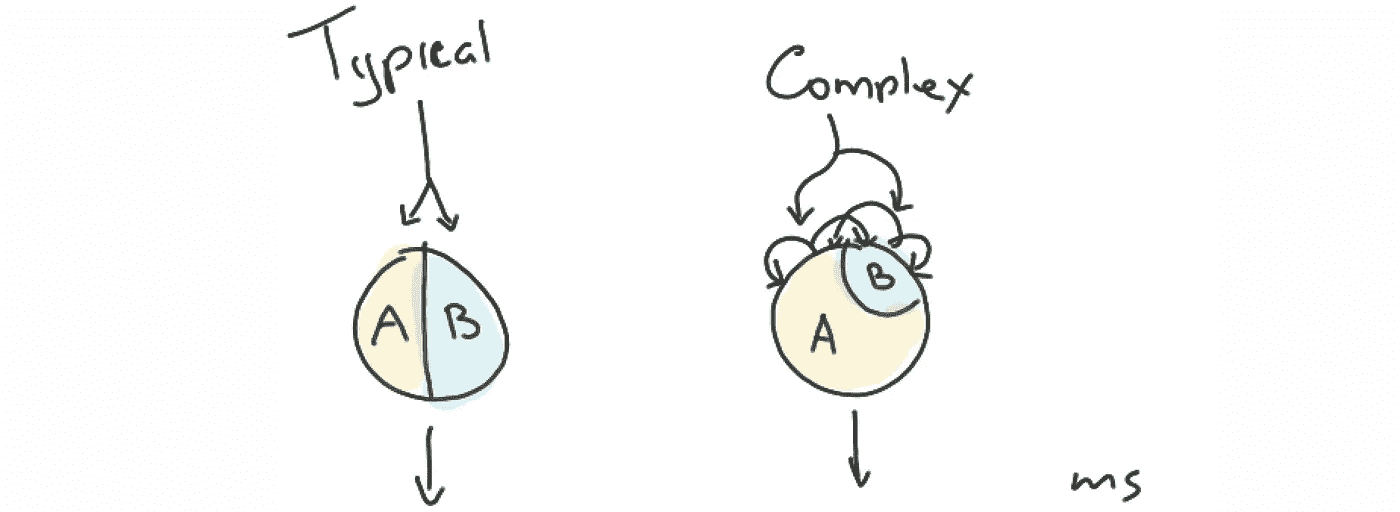 Typical
Complex
A B
B
A
ms